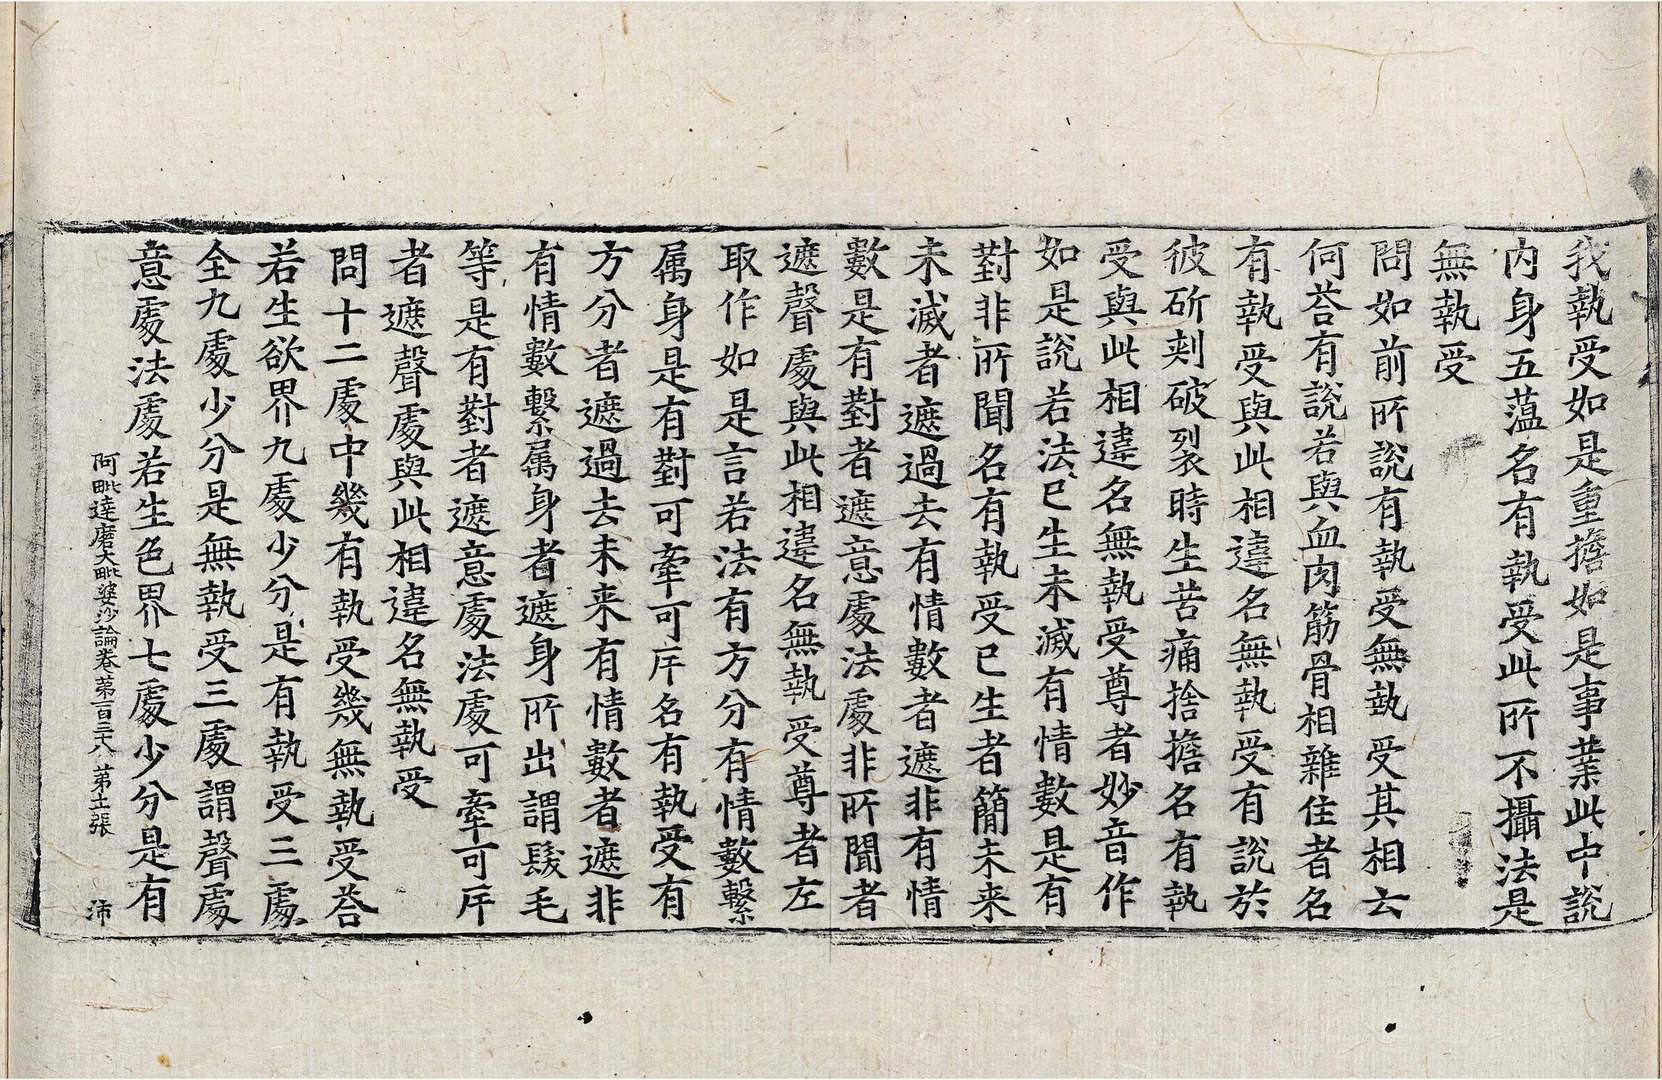 我執受如是重擔如是事業此中說
內身五蘊名有執受此所不攝法是
無執受
問如前所說有執受無執受其相云
何荅有說若與血肉筋骨相雜住者名
有執受與此相違名無執受有說於
彼斫刾破裂時生苦痛捨擔名有執
受與此相違名無執受尊者妙音作
如是說若法已生未滅有情數是有
對非所聞名有執受已生者簡未来
未滅者遮過去有情數者遮非有情
數是有對者遮意處法處非所聞者
遮聲處與此相違名無執受尊者左
取作如是言若法有方分有情數繫
属身是有對可牽可斥名有執受有
方分者遮過去未来有情數者遮非
有情數繫属身者遮身所出謂髮毛
等是有對者遮意處法處可牽可斥
者遮聲處與此相違名無執受
問十二處中幾有執受幾無執受荅
若生欲界九處少分是有執受三處
全九處少分是無執受三處謂聲處
意處法處若生色界七處少分是有
阿毗達磨大毗婆沙論卷第一百三十八 第十二張 沛